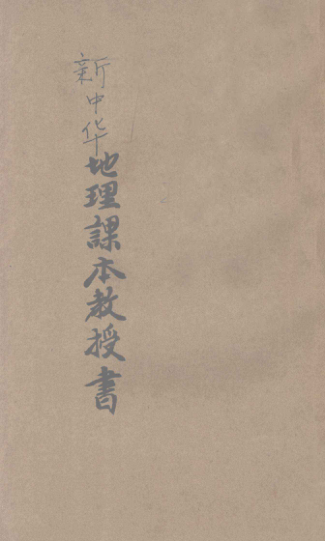 新中华地理課本教授書